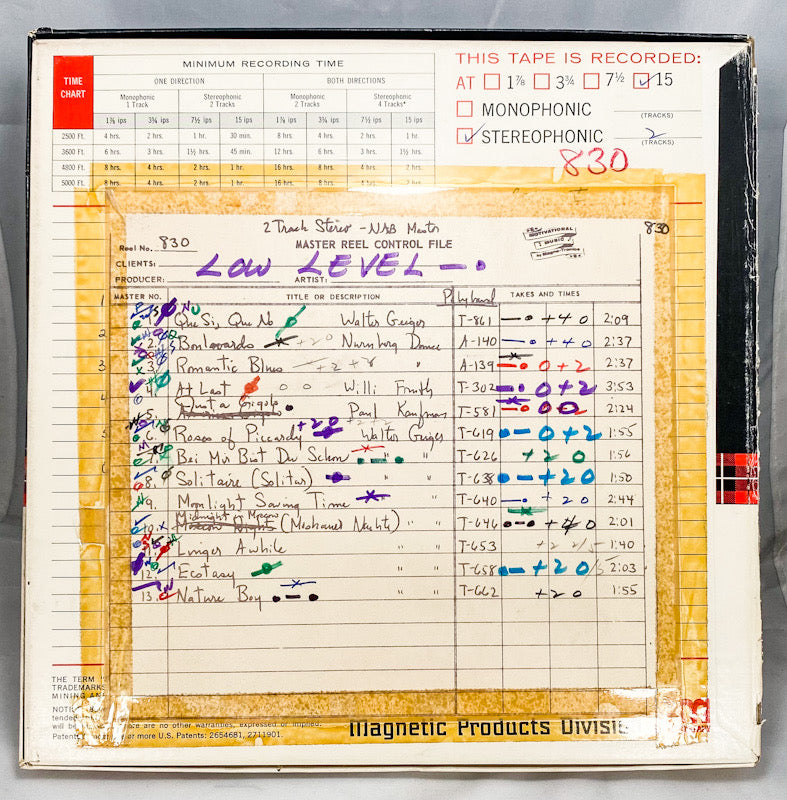 MINIMUM RECORDING TIME
TIME CHART
ONE DIRECTION BOTH DIRECTIONS
Monophonic 1 Track Stereophonic 2 Tracks Monophonic 2 Tracks Stereophonic 4 Tracks*
1⅞ ips 3¾ ips 7½ ips 15 ips 1⅞ ips 3¾ ips 7½ ips 15 ips
2500 FT. 4 hrs. 2 hrs. 1 hr. 30 min. 8 hrs. 4 hrs. 2 hrs. 1 hr.
3600 FT. 6 hrs. 3 hrs. 1½ hrs. 45 min. 12 hrs. 6 hrs. 3 hrs. 1½ hrs.
4800 FT. 8 hrs. 4 hrs. 2 hrs. 1 hr. 16 hrs. 8 hrs. 4 hrs. 2 hrs.
5000 FT. 8 hrs. 4 hrs. 2 hrs. 1 hr. 16 hrs. 8 hrs. 4 hrs. 2 hrs.
THIS TAPE IS RECORDED:
AT 1⅞ 3¾ 7½ 15
MONOPHONIC (TRACKS)
STEREOPHONIC 2 (TRACKS)
830
2 Track Stereo - NAB Master
830
Reel No. 830 MASTER REEL CONTROL FILE
MOTIVATIONAL MUSIC
by Magne-Tronics
CLIENTS: LOW LEVEL
PRODUCER: ARTIST:
MASTER NO. TITLE OR DESCRIPTION TAKES AND TIMES
1. Que Si, Que No Walter Geiger T-861 +40 2:09
2. Boulavards +20 Nurnberg Dance A-140 +40 2:37
3. Romantic Blues " A-139 0+2 2:37
4. At Last 0 0 Willi Fruth T-302 0+2 3:53
5. Just a Gigolo Paul Kaufman T-581 2:24
6. Roses of Piccardy +20 Walter Geiger T-619 0+2 1:55
7. Bei Mir Bist Du Schon " " T-626 +20 1:56
8. Solitaire (Solitur) " " T-638 +20 1:50
9. Moonlight Saving Time " T-640 +20 2:44
Midnight in Moscow
10. Moscow Nights (Mishaned Nights) " T-646 2:01
Linger Awhile " " T-653 1:40
12. Ecstasy " " T-658 +20 2:03
13. Nature Boy " " T-662 +20 1:55
THE TERM
TRADEMARKS
MINING AN
are no other warranties, expressed or implied.
or more U.S. Patents: 2654681, 2711901.
Magnetic Products Divisi